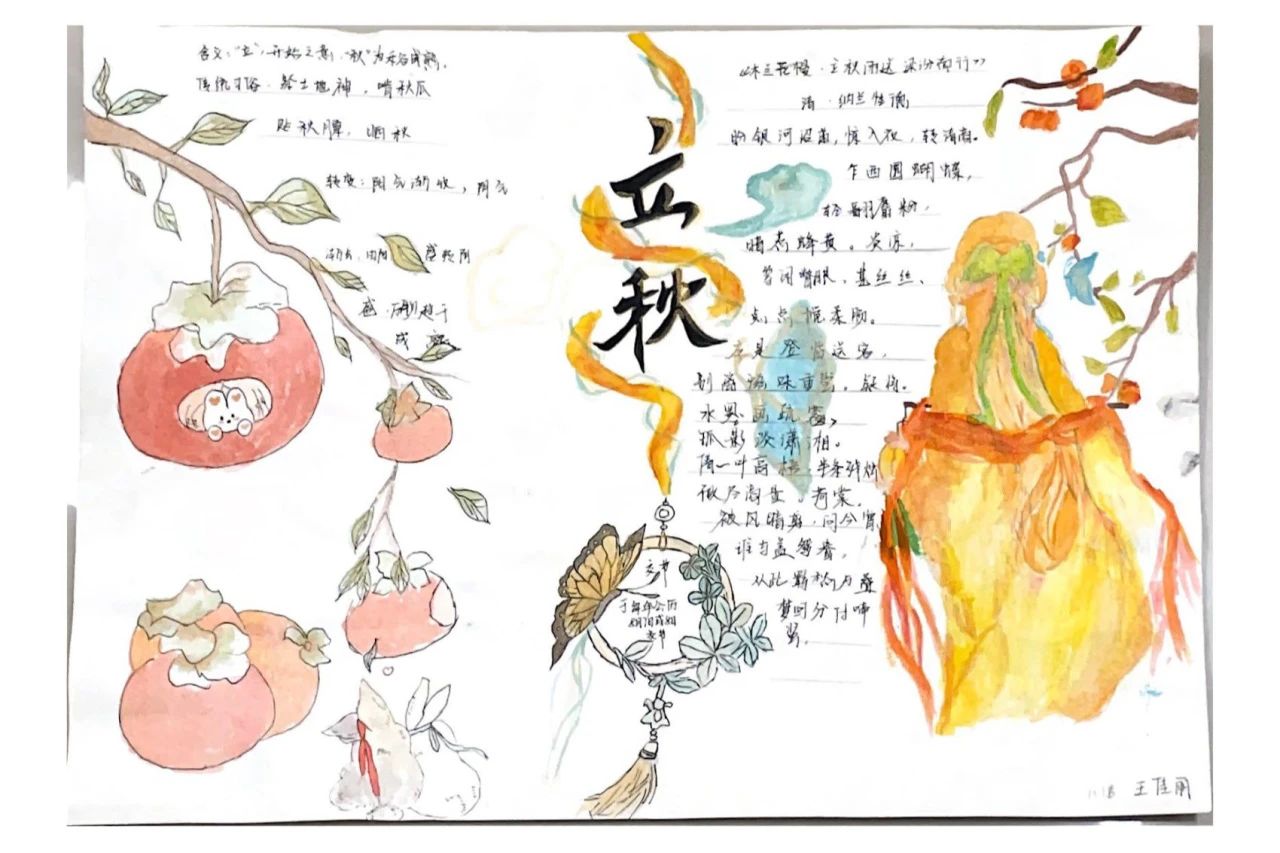 含义："立"，开始之意，"秋"为禾谷成熟，
传统习俗·祭土地神，啃秋瓜
贴秋膘，晒秋
转变：阳气渐收，阴气
渐长，由阳盛转阴
盛，万物趋于
成
立
秋
《木兰花慢·立秋雨送梁汾南行》
清·纳兰性德
盼银河迢
惊入夜，转清商。
乍西园蝴蝶，
轻翻麝粉，
暗惹蜂黄。炎凉，
等闲瞥眼，甚丝丝、
点点
柔肠。
应是登临送客，
别离滋味重尝。疑将。
水墨画疏窗，
孤影淡潇湘。
倩一叶高梧，半条残烛
做尽商量。荷裳。
被风暗剪，问今宵
谁与盖鸳鸯。
从此羁
万叠
梦回分付啼
螀。
交节
于每年公历
8月7日或8日
交节
王佳